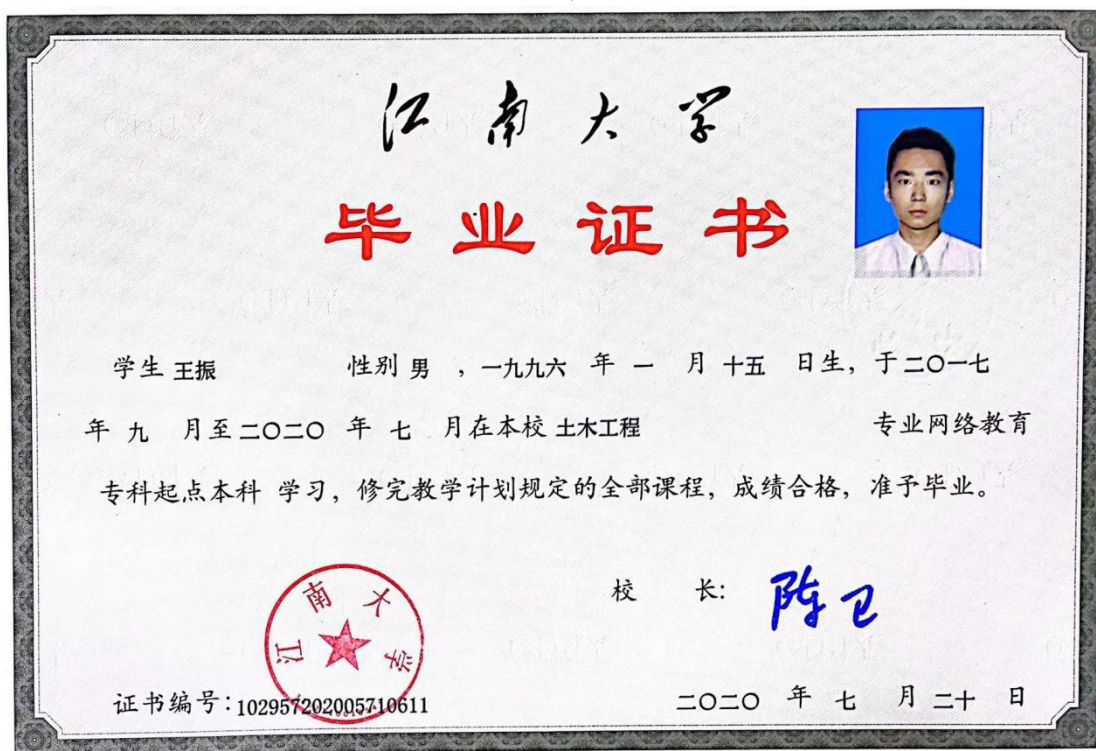 江南大学
毕业证书
学生 王振 性别 男 ，一九九六 年 一 月 十五 日生，于二〇一七
年 九 月至二〇二〇 年 七 月在本校 土木工程 专业网络教育
专科起点本科 学习，修完教学计划规定的全部课程，成绩合格，准予毕业。
校 长：陈卫
江南大学
证书编号：102957202005710611 二〇二〇 年 七 月 二十 日